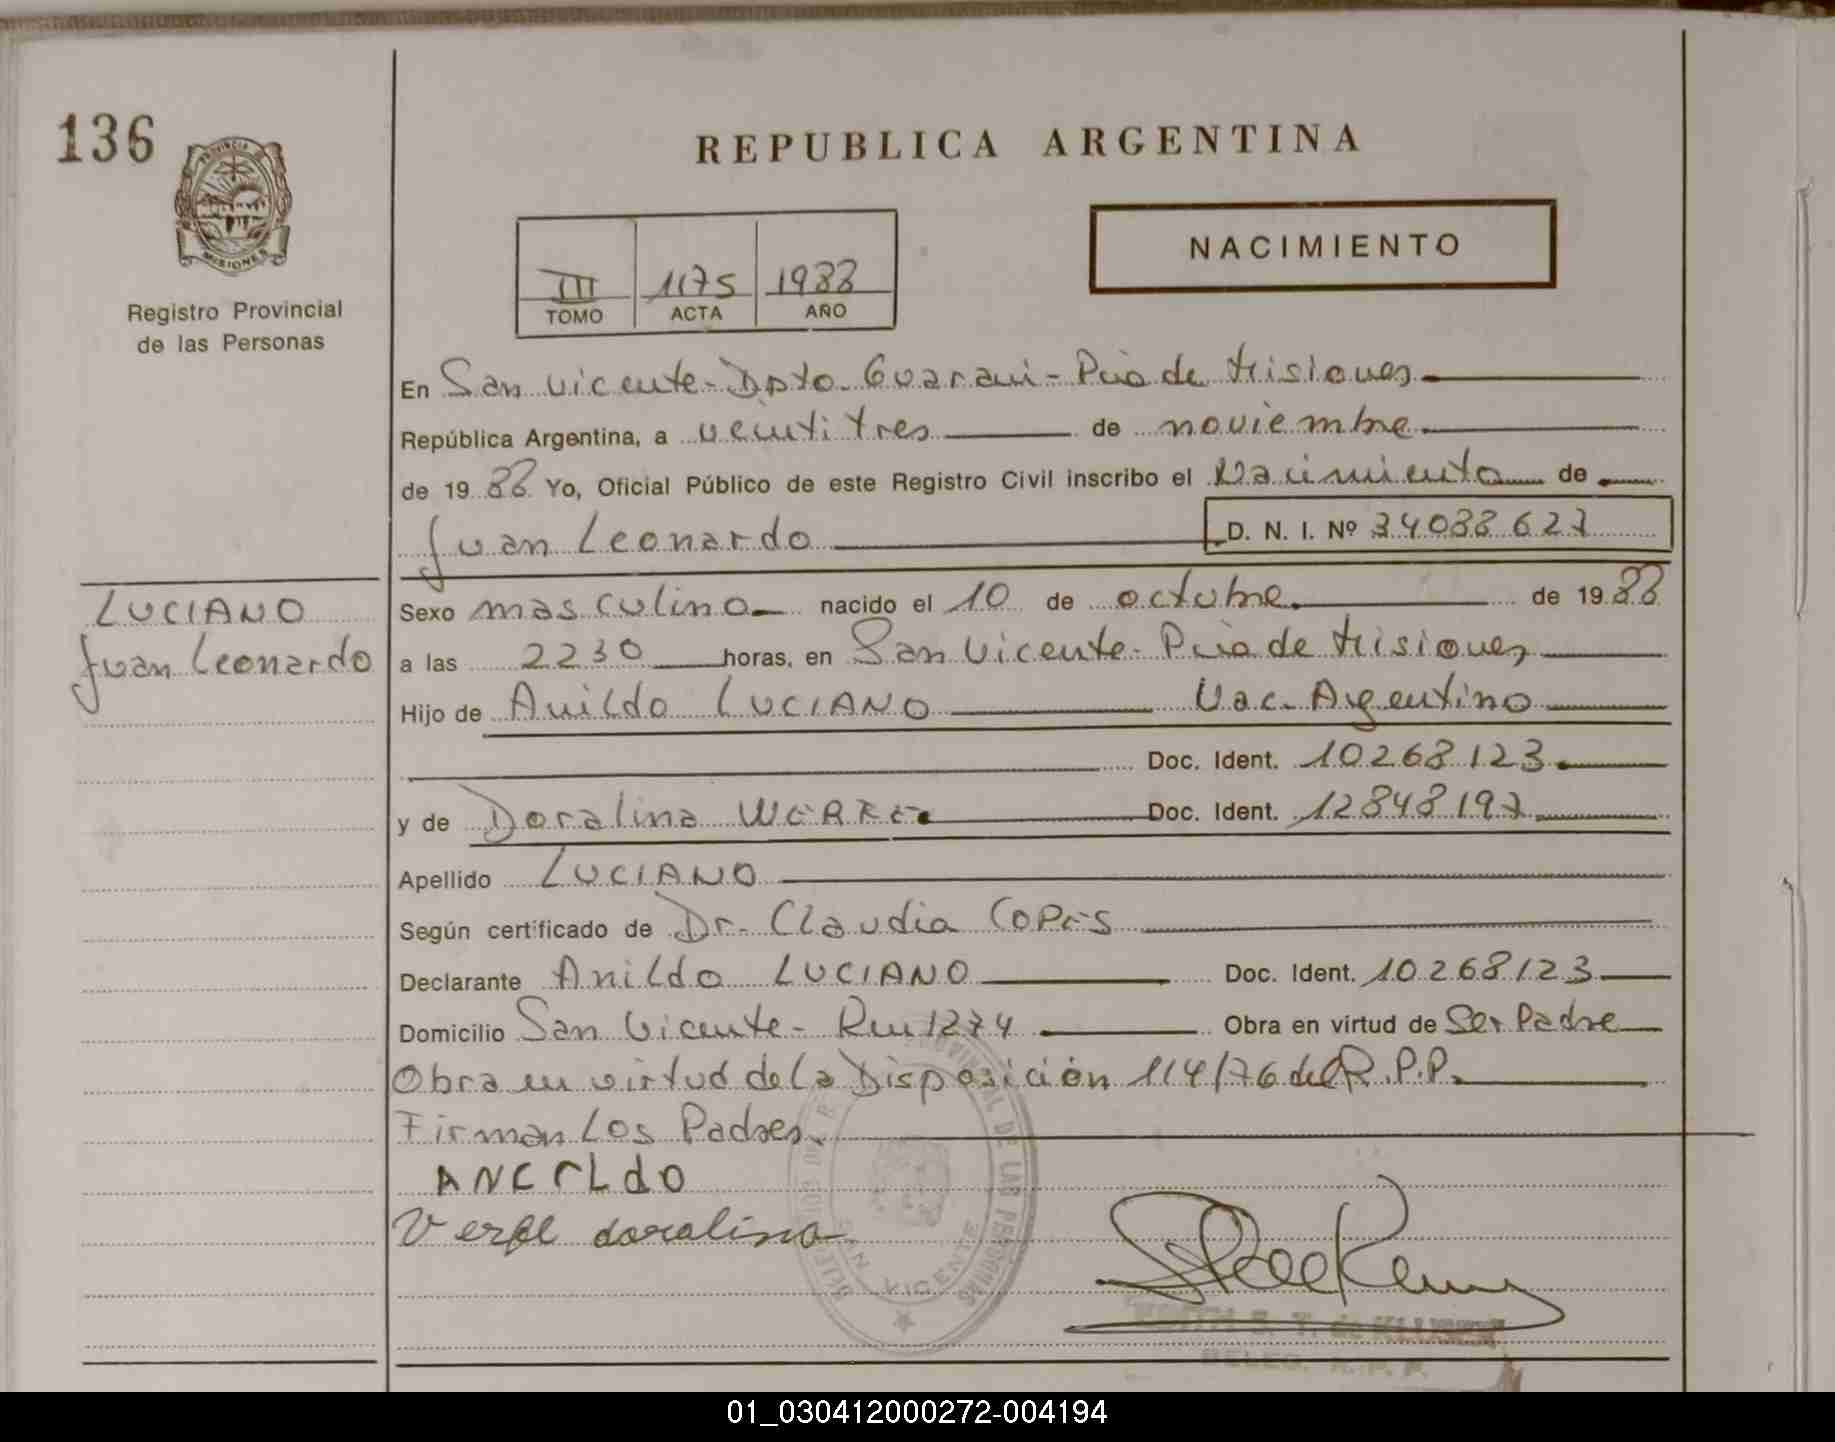 136
REPUBLICA ARGENTINA
PROVINCIA
MISIONES
Registro Provincial
de las Personas
NACIMIENTO
III 1175 1988
TOMO ACTA AÑO
En San Vicente - Dpto. Guarani - Pcia de Misiones
República Argentina, a veintitres de noviembre
de 1988 Yo, Oficial Público de este Registro Civil inscribo el Nacimiento de
Juan Leonardo D. N. I. Nº 34088627
LUCIANO
Juan Leonardo
Sexo masculino nacido el 10 de octubre de 1988
a las 2230 horas, en San Vicente - Pcia de Misiones
Hijo de Anildo LUCIANO Nac. Argentino
Doc. Ident. 10268123
y de Doralina Doc. Ident. 12848197
Apellido LUCIANO
Según certificado de Dr. Claudia COPES
Declarante Anildo LUCIANO Doc. Ident. 10268123
Domicilio San Vicente - Km 1274 Obra en virtud de Ser Padre
Obra en virtud de la Disposición 114/76 del R.P.P.
Firman Los Padres.
doralina
PROVINCIAL DE LAS PERSONAS
SAN VICENTE
DELEG. R. P. P.
01_030412000272-004194